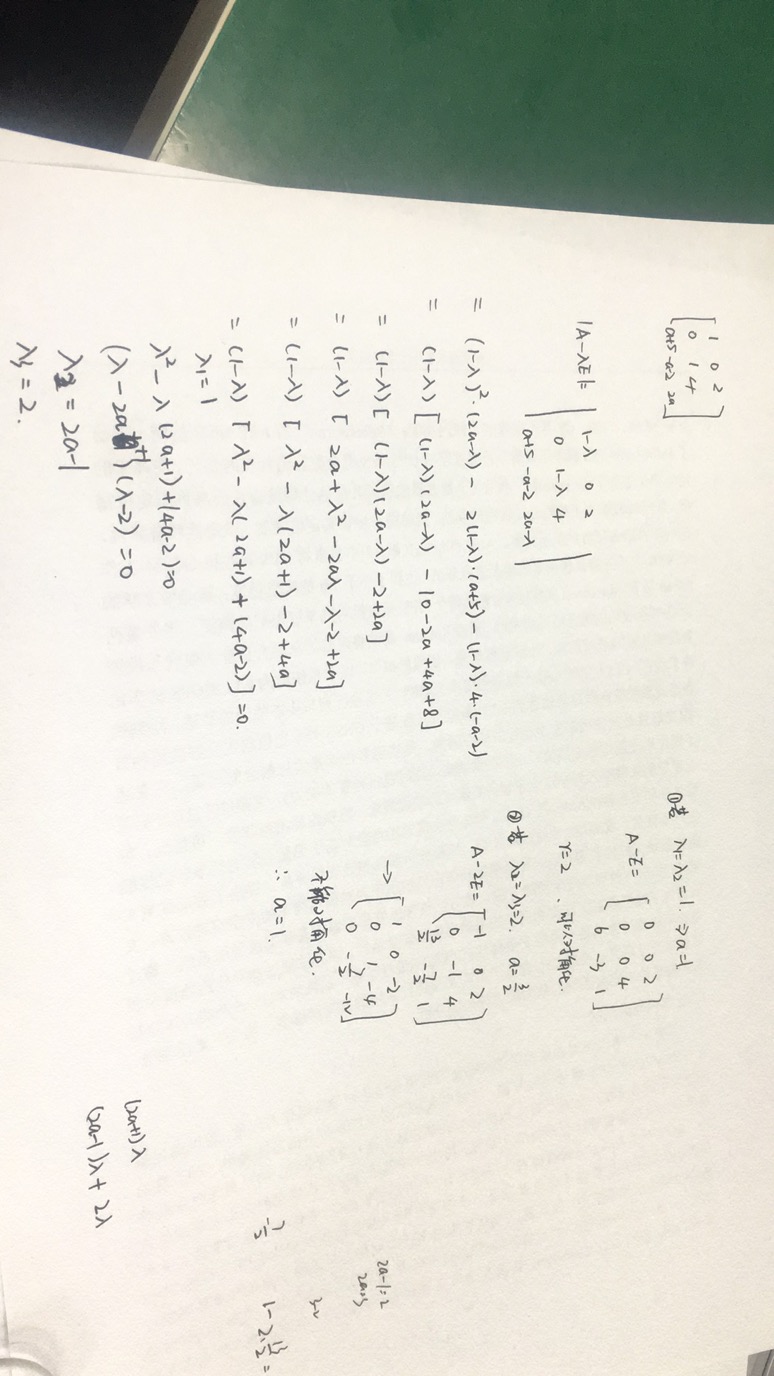 [1 0 2
0 1 4
a+5 -a-2 2a]
|A-λE| = |1-λ 0 2
0 1-λ 4
a+5 -a-2 2a-λ|
= (1-λ)²·(2a-λ) - 2(1-λ)·(a+5) - (1-λ)·4·(-a-2)
= (1-λ) [ (1-λ)(2a-λ) - 10-2a+4a+8]
= (1-λ) [ (1-λ)(2a-λ) -2+2a]
= (1-λ) [ 2a+λ²-2aλ-λ-2+2a]
= (1-λ) [ λ²-λ(2a+1)-2+4a]
= (1-λ) [ λ²-λ(2a+1)+(4a-2)]=0.
λ₁=1
λ²-λ(2a+1)+(4a-2)=0
(λ-2a+1)(λ-2)=0
λ₂=2a-1
λ₃=2.
①若 λ₁=λ₂=1. ⇒a=1
A-E= [0 0 2
0 0 4
6 -3 1]
r=2 、可以对角化.
②若 λ₂=λ₃=2. a=3/2
A-2E= [-1 0 2
0 -1 4
13/2 -7/2 1]
→ [1 0 -2
0 1 -4
0 -7/2 -12]
不能对角化.
∴ a=1.
2a-1=2
2a=3
(2a+1)λ
(2a-1)λ+2λ